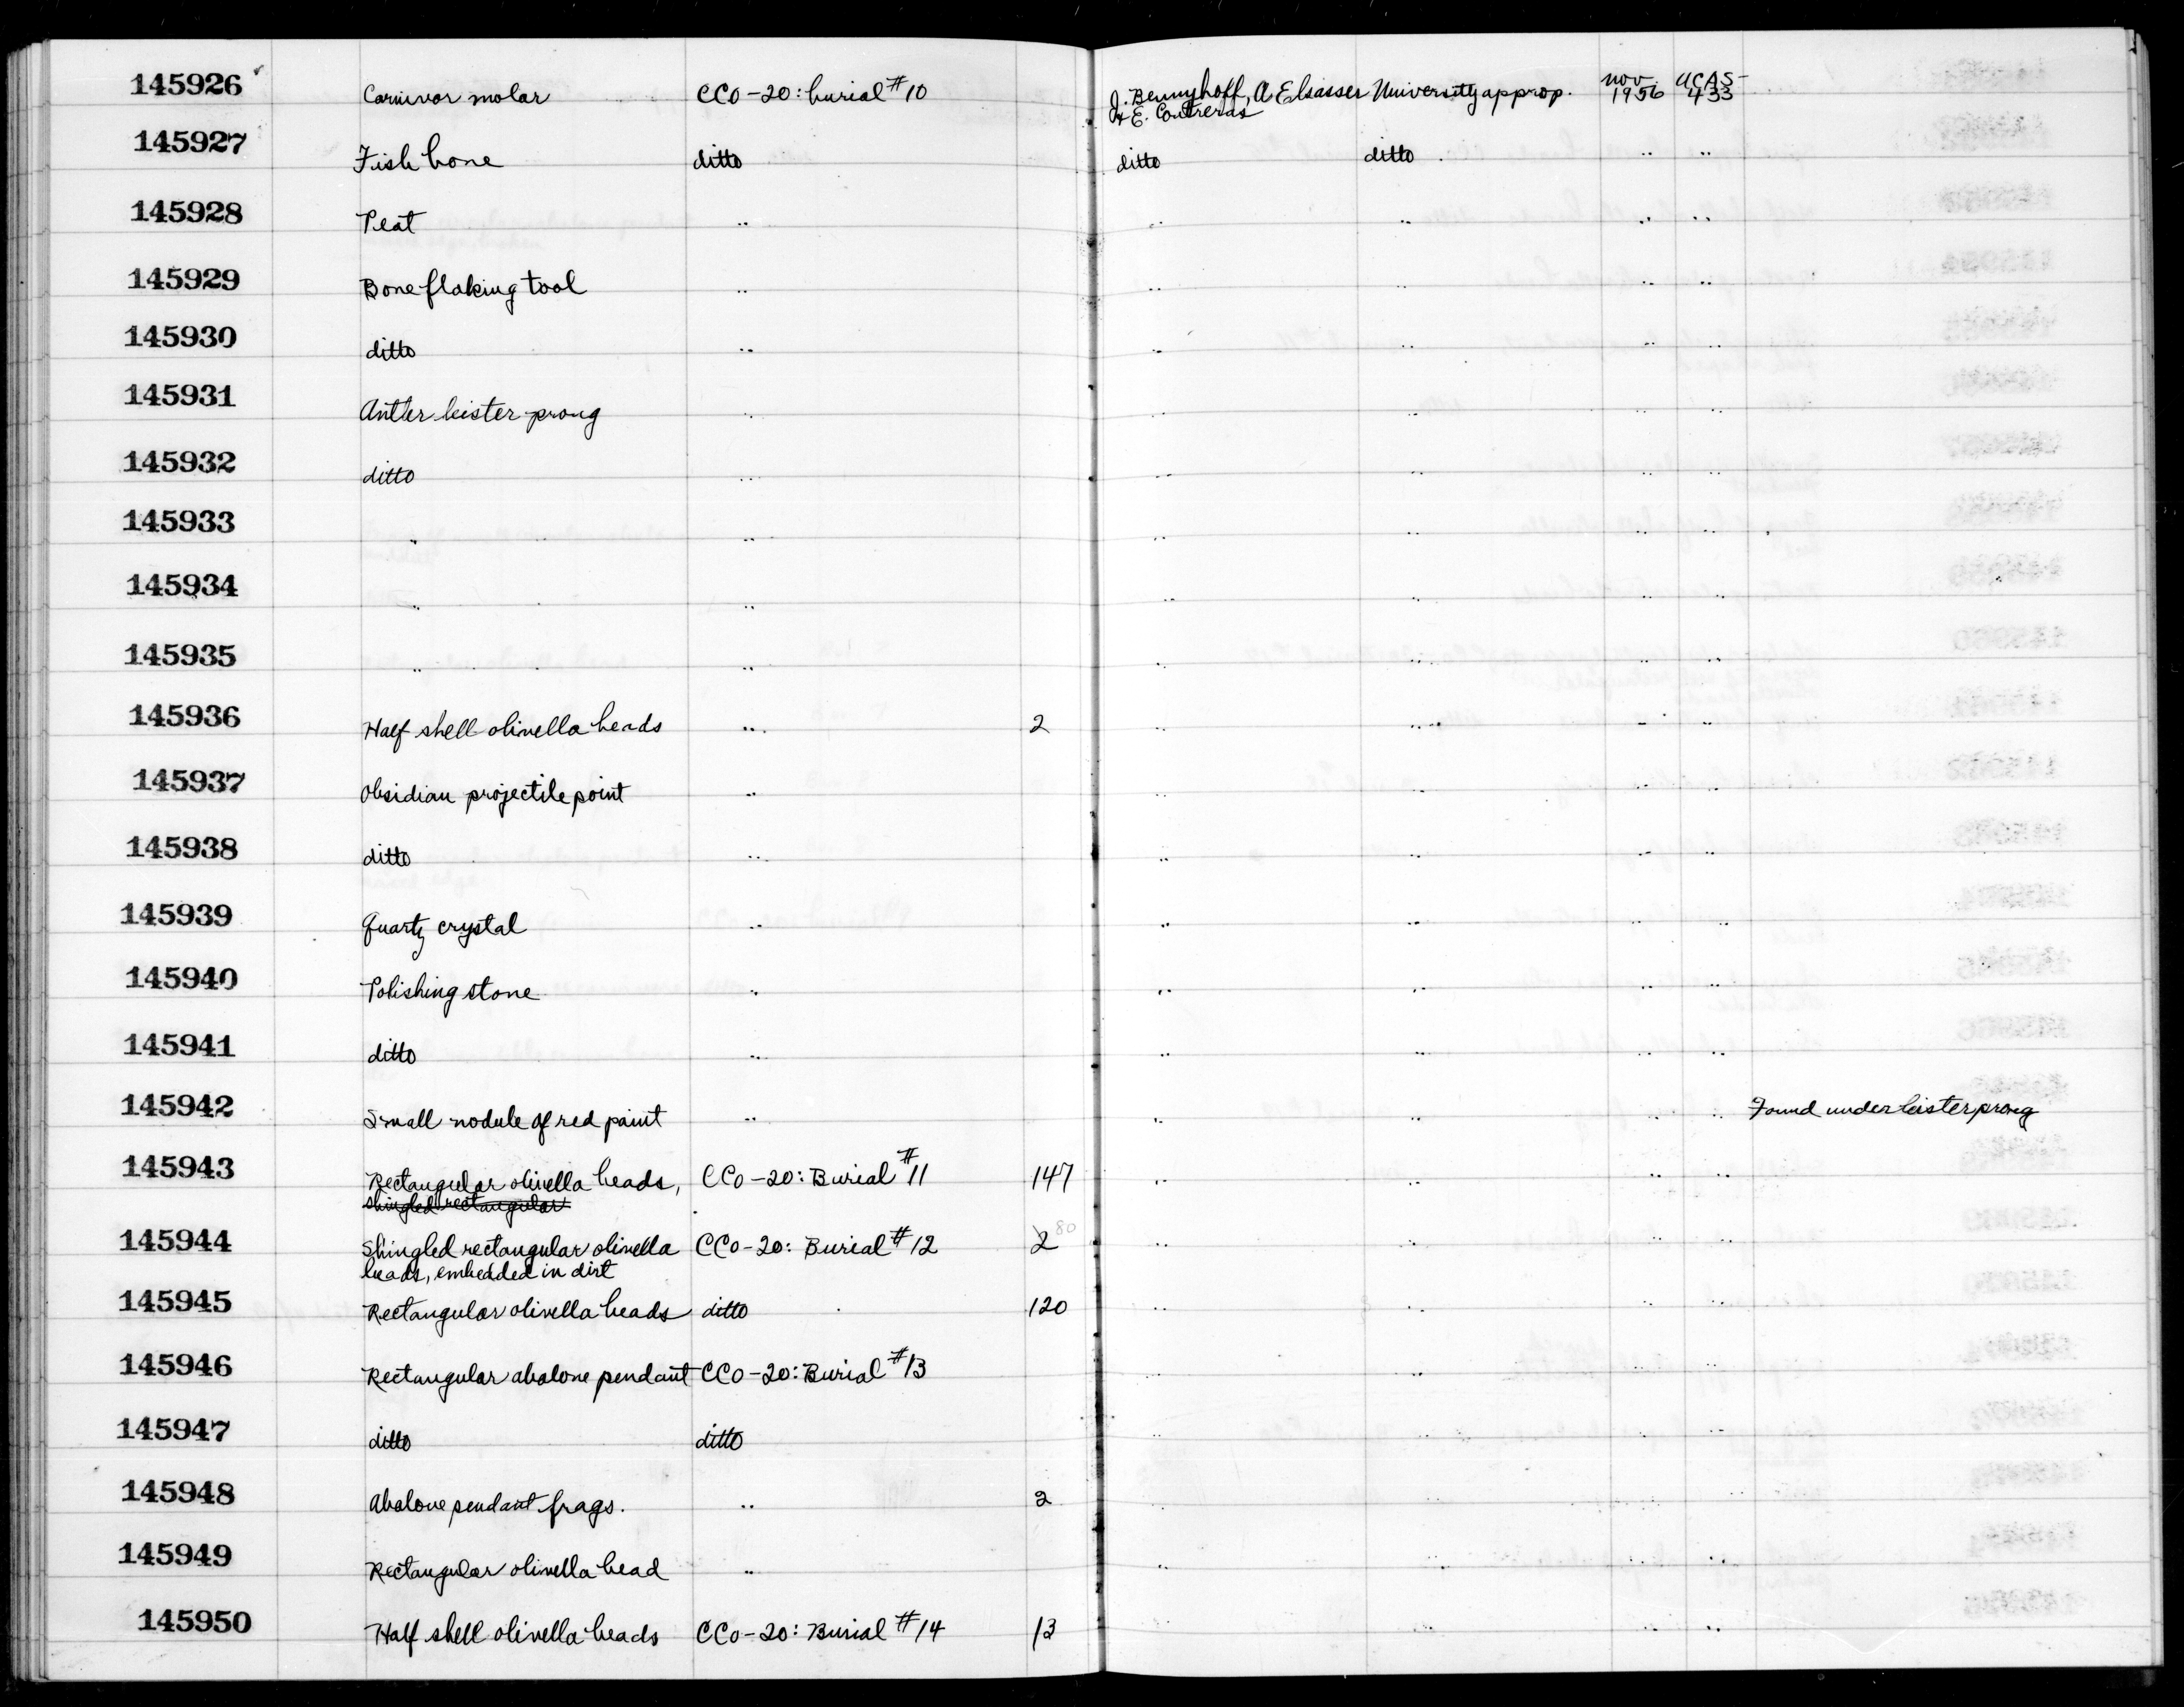 145926 Carnivor molar CCo-20: burial #10 J. Bennyhoff, A Elsasser University approp. Nov. UCAS-
& E. Contreras 1956 433
145927 Fish bone ditto ditto ditto " "
145928 Peat " " " " "
145929 Bone flaking tool " " " " "
145930 ditto " " " " "
145931 Antler leister prong " " " " "
145932 ditto " " " " "
145933 " " " " " "
145934 " " " " " "
145935 " " " " " "
145936 Half shell olivella beads " 2 " " " "
145937 Obsidian projectile point " " " " "
145938 ditto " " " " "
145939 Quartz crystal " " " " "
145940 Polishing stone " " " " "
145941 ditto " " " " "
145942 Small nodule of red paint " " " " " Found under leister prong
145943 Rectangular olivella beads, CCo-20: Burial #11 147 " " " "
shingled rectangular
145944 Shingled rectangular olivella CCo-20: Burial #12 2 80 " " " "
beads, embedded in dirt
145945 Rectangular olivella beads ditto 120 " " " "
145946 Rectangular abalone pendant CCo-20: Burial #13 " " " "
145947 ditto ditto " " " "
145948 Abalone pendant frags. " 2 " " " "
145949 Rectangular olivella bead " " " " "
145950 Half shell olivella beads CCo-20: Burial #14 13 " " " "